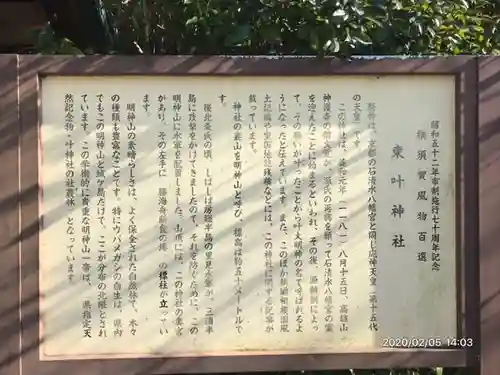 昭和五十二年市制施行七十周年記念
横須賀風物百選
東叶神社
祭神は、京都の石清水八幡宮と同じ応神天皇(第十五代
の天皇)です。
この神社は、養和元年(一一八一)八月十五日、高雄山
神護寺の僧文覚が、源氏の再興を願って石清水八幡宮の霊
を迎えたことに始まるといわれ、その後、源頼朝によっ
て、その願いが叶ったことから叶大明神の名で呼ばれるよ
うになったと伝えています。また、このほか新編相模国風
土記稿や皇国地誌残稿などには、この神社に関する記事が
載っています。
神社の裏山を明神山と呼び、標高は約五十メートルで
す。
後北条氏の頃、しばしば房総半島の里見水軍が、三浦半
島に攻撃をかけてきましたので、それを防ぐために、この
明神山に水軍を配置しました。山頂には、この神社の奥宮
があり、その左手に「勝海舟断食の跡」の標柱が立ってい
ます。
明神山の素晴らしさは、よく保全された自然林で、木々
の種類も豊富なことです。特にウバメガシの自生は、県内
でもこの明神山と城ケ島だけで、ここが分布の北限とされ
ています。この学術的に貴重な明神山一帯は、「県指定天
然記念物・叶神社の社叢林」となっています。
2020/02/05 14:03